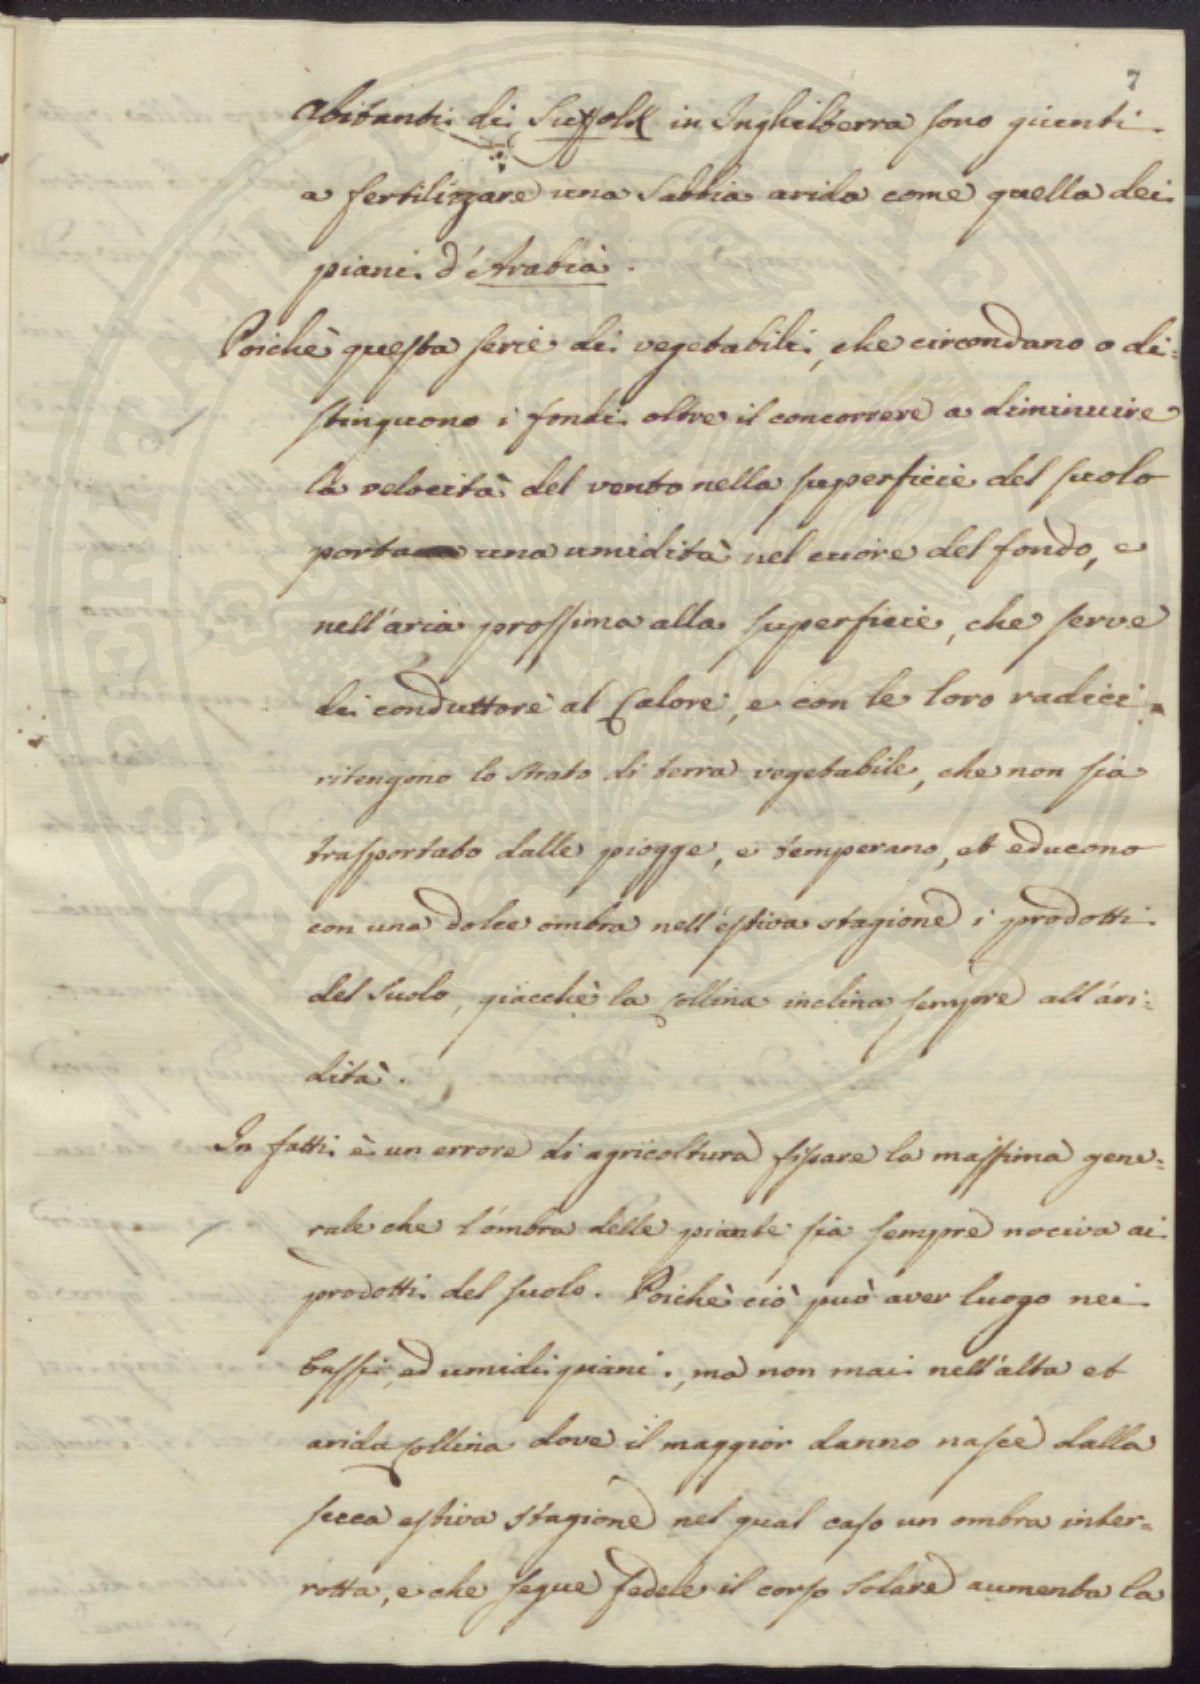 7
abitanti di Suffolk in Inghilterra sono giunti
a fertilizzare una sabbia arida come quella dei
piani d'Arabia.
Poichè questa serie di vegetabili, che circondano o di=
stinguono i fondi oltre il concorrere a diminuire
la velocità del vento nella superficie del suolo
porta una umidità nel cuore del fondo, e
nell'aria prossima alla superficie, che serve
di conduttore al Calore, e con le loro radici
ritengono lo strato di terra vegetabile, che non sia
trasportato dalle piogge, e temperano, et educono
con una dolce ombra nell'estiva stagione i prodotti
del Suolo, giacchè la Collina inclina sempre all'ari=
dità.
In fatti è un errore di agricoltura fissare la massima gene=
rale che l'ombra delle piante sia sempre nociva ai
prodotti del suolo. Poichè ciò può aver luogo nei
bassi, ed umidi piani, ma non mai nell'alta et
arida Collina dove il maggior danno nasce dalla
secca estiva stagione nel qual caso un ombra inter=
rotta, e che segue fedele il corso Solare aumenta la